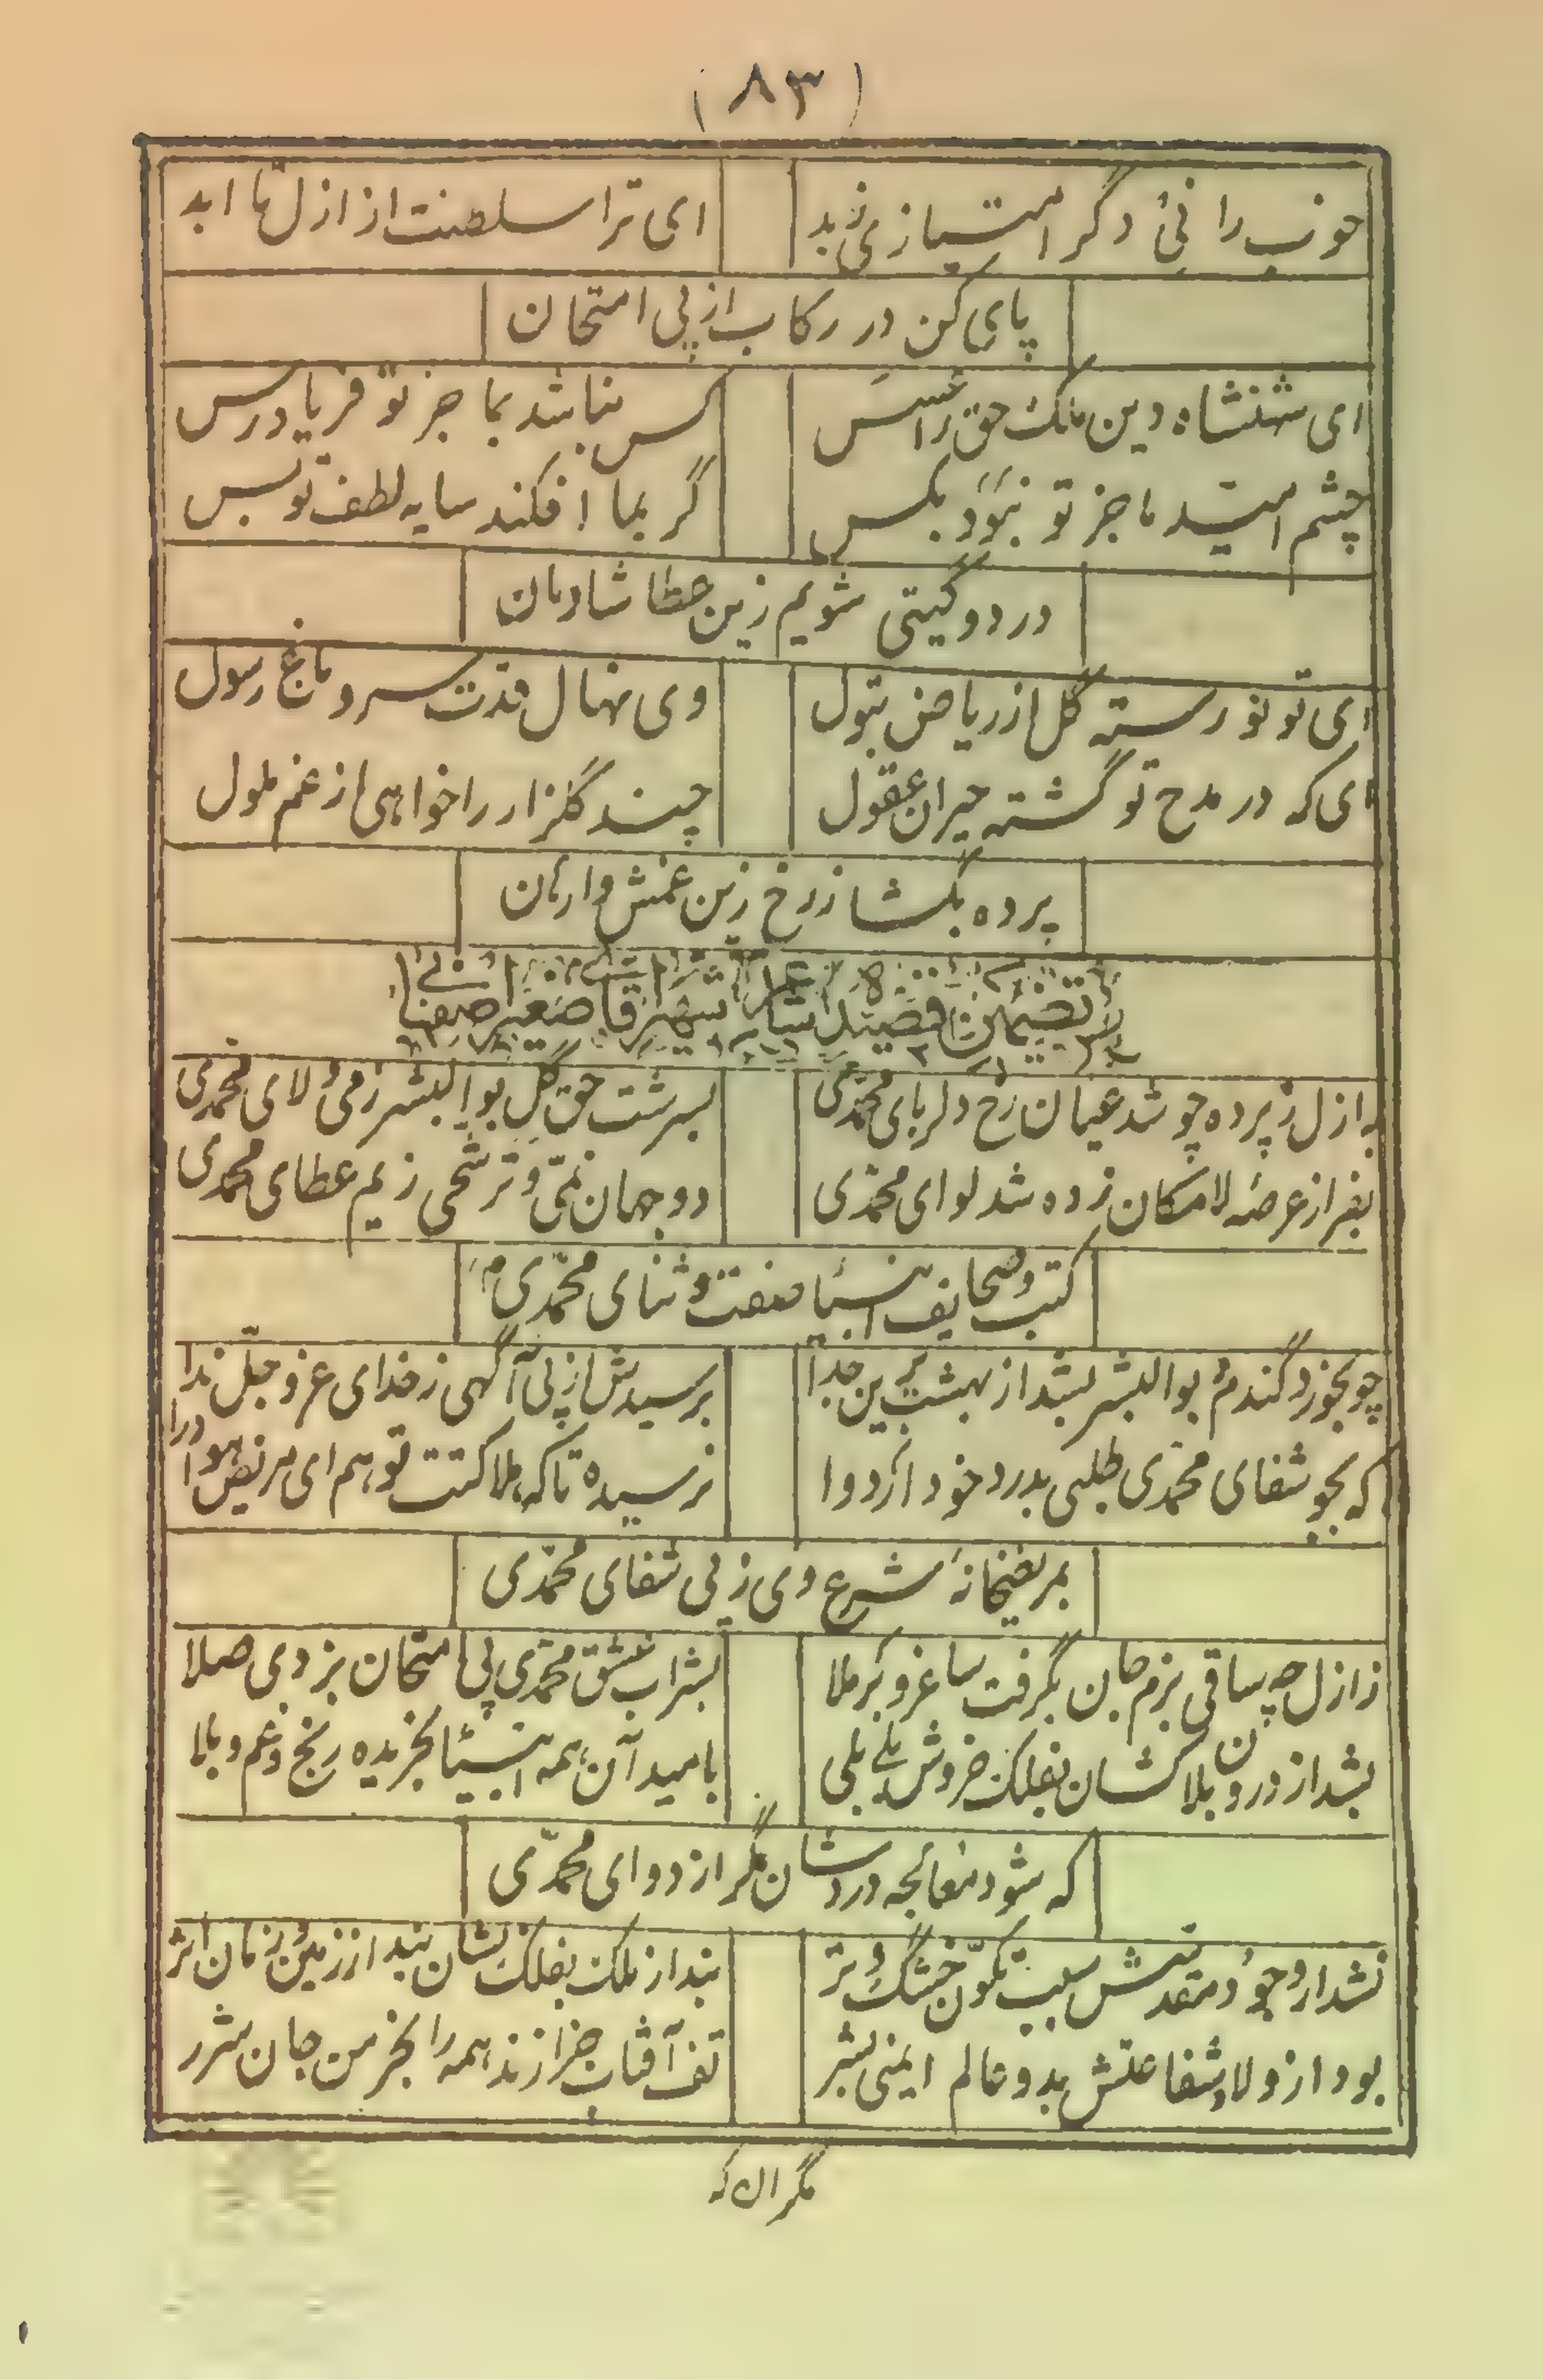 (٨٣)
خوب را نی دگر امتیازی زبد    ای ترا سلطنت از ازل تا ابد
پای کن در رکاب از پی امتحان
ای شهنشاه دین ملک حق را عسس    کس نباشد بما جز تو فریادرس
چشم امید ما جز تو نبود بکس    گر بما افکند سایه لطف تو بس
در دو گیتی شویم زین عطا شادمان
ای تو نورسته گل از ریاض بتول    وی نهال قدت سرو باغ رسول
ای که در مدح تو گشته حیران عقول    چند گلزار را خواهی از غم ملول
پرده بگشا ز رخ زین غمش وارهان
تضمین قصیده شاعر شهیر آقا صغیر اصفهانی
به ازل ز پرده چو شد عیان رخ دلربای محمّدی    بسرشت حق گل بوالبشر ز می ولای محمدی
بفراز عرصه لامکان زده شد لوای محمّدی    دو جهان نمی و ترشحی ز یم عطای محمدی
کتب و صحایف انبیا صفت و ثنای محمّدی
چو بخورد گندم بوالبشر بشد از بهشت برین جدا    برسیدش از پی آگهی ز خدای عزوجلّ ندا
که بجو شفای محمدی طلبی بدرد خود ار دوا    نرسیده تا که هلاکتت تو هم ای مریض هوا درا
بمریضخانهٔ شرع وی ز پی شفای محمّدی
ز ازل چه ساقی بزم جان بگرفت ساغر و برملا    بشراب عشق محمّدی پی امتحان بزدی صلا
بشد از درون بلاکشان بفلک خروش بلی بلی    بامید آن همه انبیا بخریده رنج و غم و بلا
که شود معالجه دردشان مگر از دوای محمّدی
نشد ار وجود مقدسش سبب تکوّن خشک و تر    نبد از ملک بفلک نشان نبد از زمین و زمان اثر
بود از ولا و شفاعتش بدو عالم ایمنی بشر    تف آفتاب جزا زند همه را بخرمن جان شرر
مگر ان که